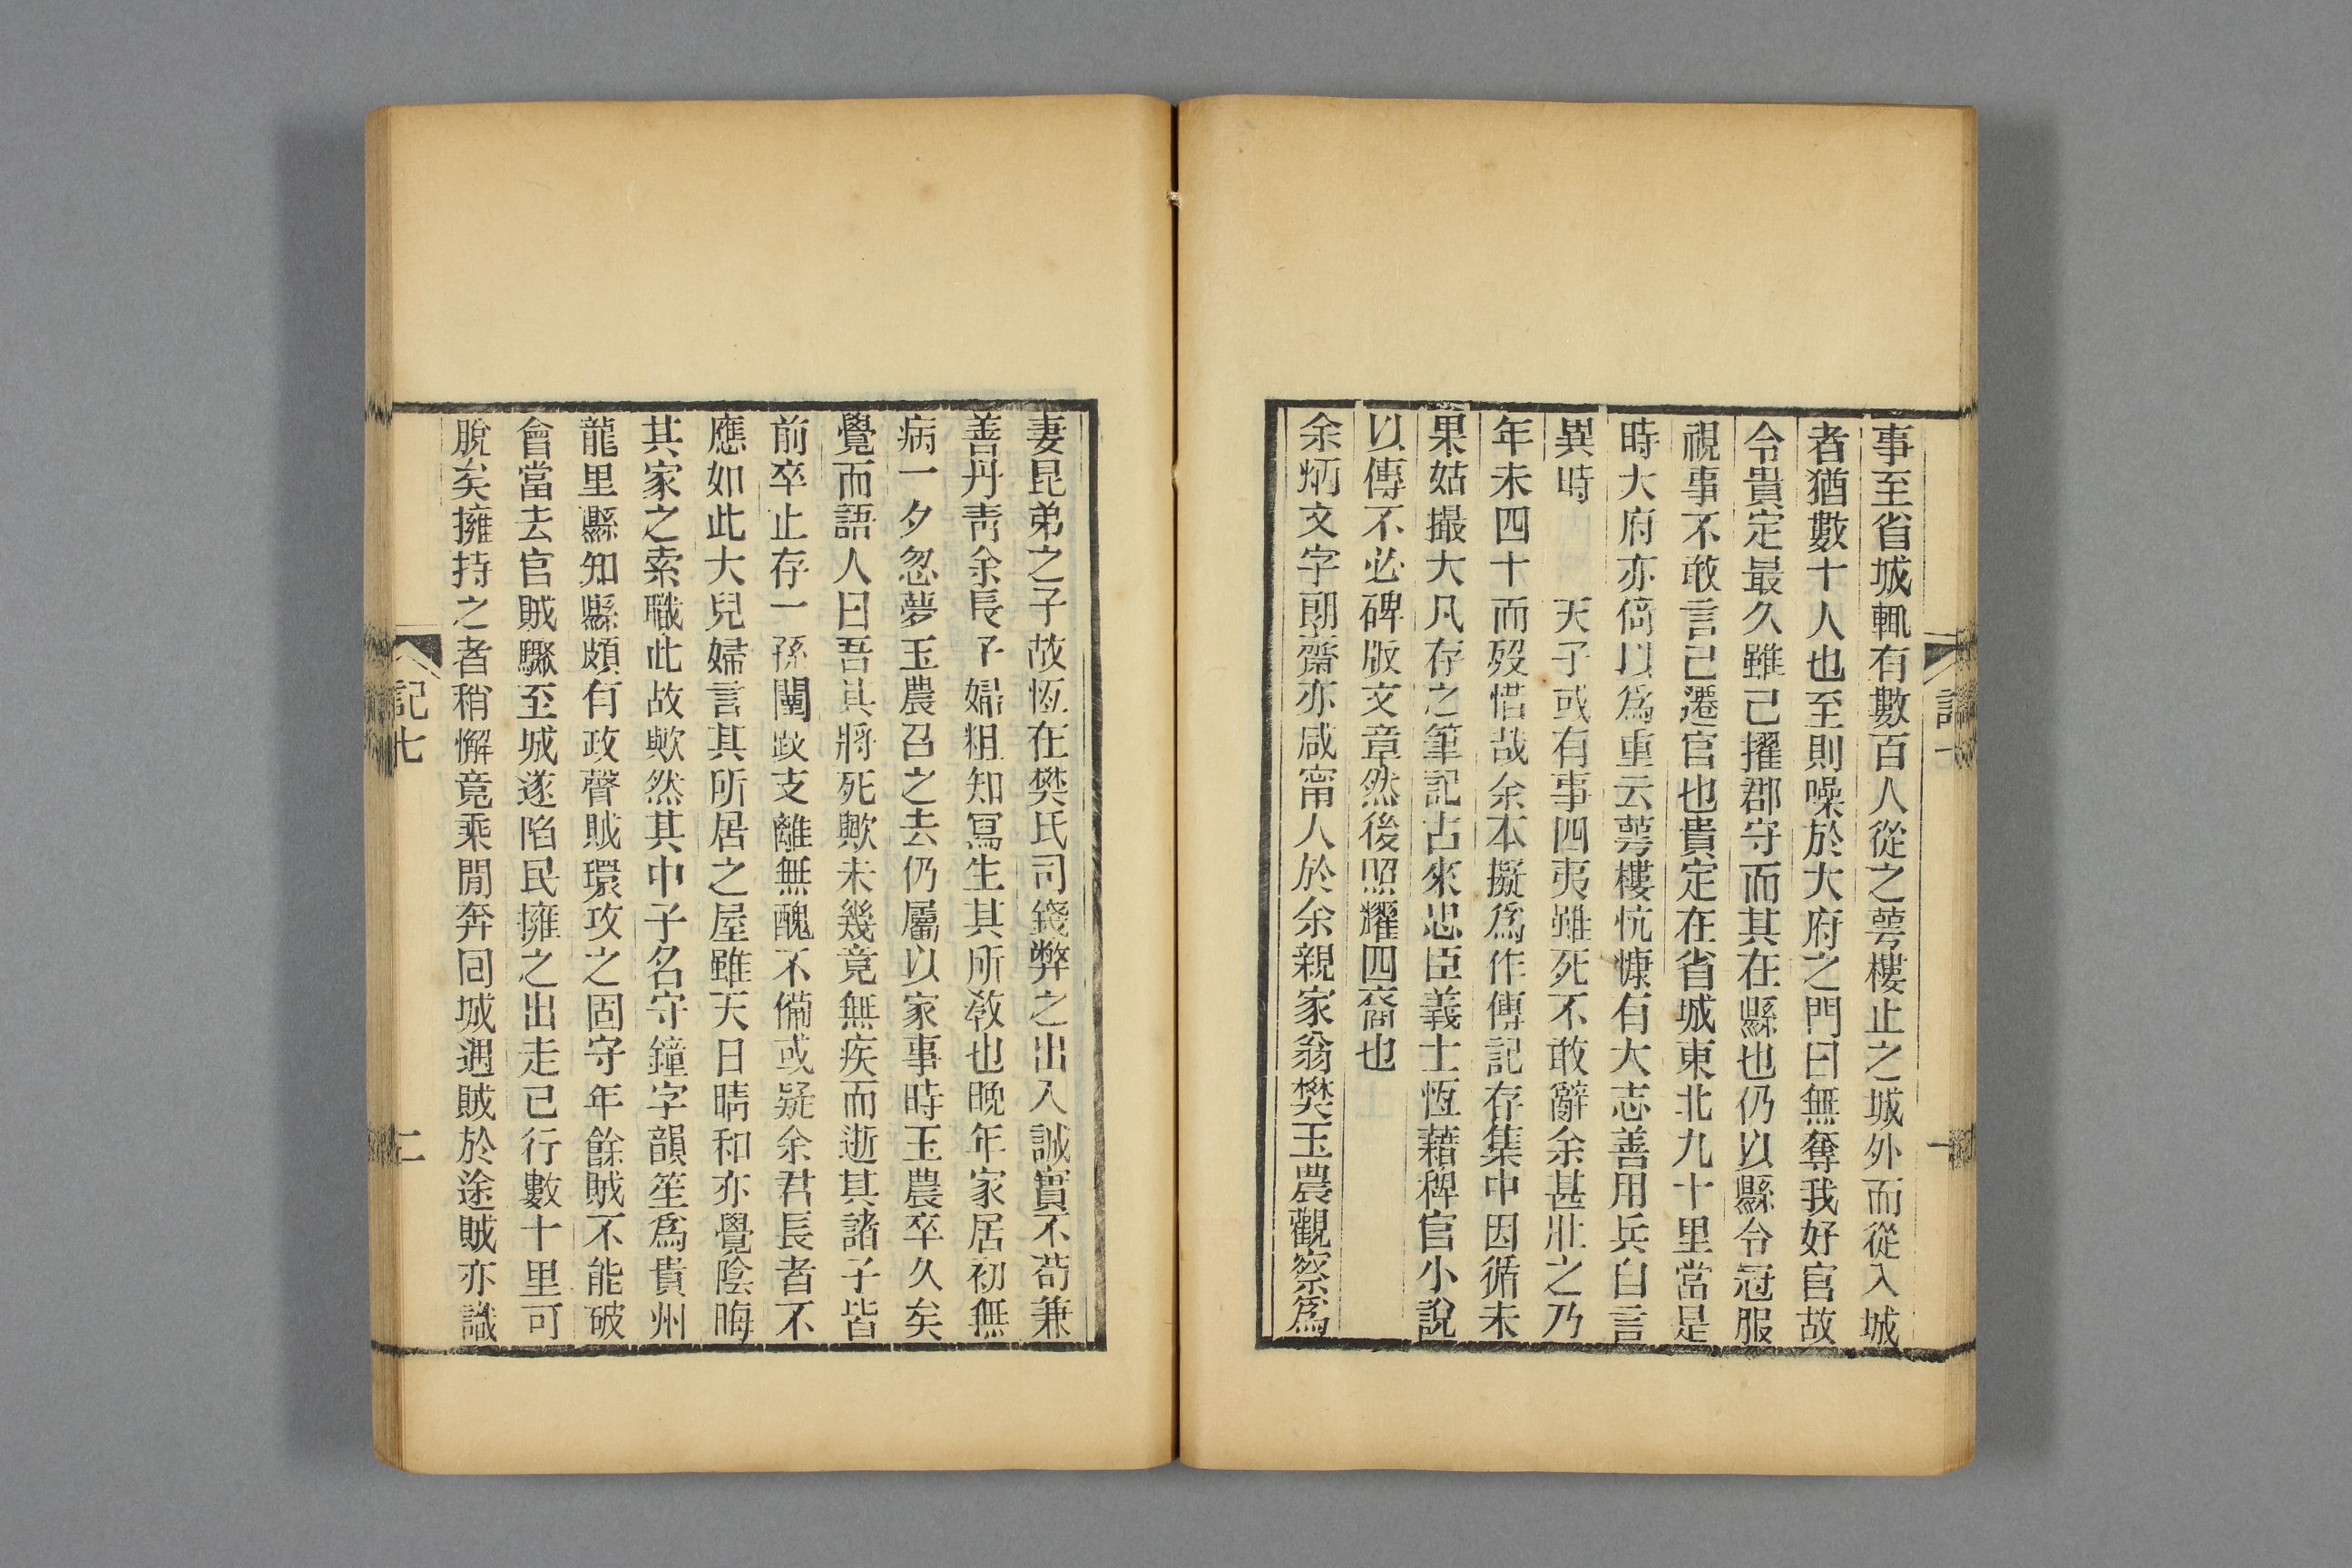 事至省城輒有數百人從之萼樓止之城外而從入城
者猶數十人也至則噪於大府之門曰無奪我好官故
令貴定最久雖己擢郡守而其在縣也仍以縣令冠服
視事不敢言己遷官也貴定在省城東北九十里當是
時大府亦倚以為重云萼樓忼慷有大志善用兵自言
異時　　天子或有事四夷雖死不敢辭余甚壯之乃
年未四十而歿惜哉余本擬爲作傳記存集中因循未
果姑撮大凡存之筆記古來忠臣義士恆藉稗官小說
以傳不必碑版文章然後照耀四裔也
余炳文字朗齋亦咸甯人於余親家翁樊玉農觀察爲
妻昆弟之子故恆在樊氏司錢弊之出入誠實不苟兼
善丹靑余長子婦粗知寫生其所敎也晚年家居初無
病一夕忽夢玉農召之去仍屬以家事時玉農卒久矣
覺而語人曰吾其將死歟未幾竟無疾而逝其諸子皆
前卒止存一孫闤跂支離無醜不備或疑余君長者不
應如此大兒婦言其所居之屋雖天日晴和亦覺陰晦
其家之索職此故歟然其中子名守鐘字韻笙爲貴州
龍里縣知縣頗有政聲賊環攻之固守年餘賊不能破
會當去官賊驟至城遂陷民擁之出走己行數十里可
脫矣擁持之者稍懈竟乘閒奔囘城遇賊於途賊亦識
記七
二